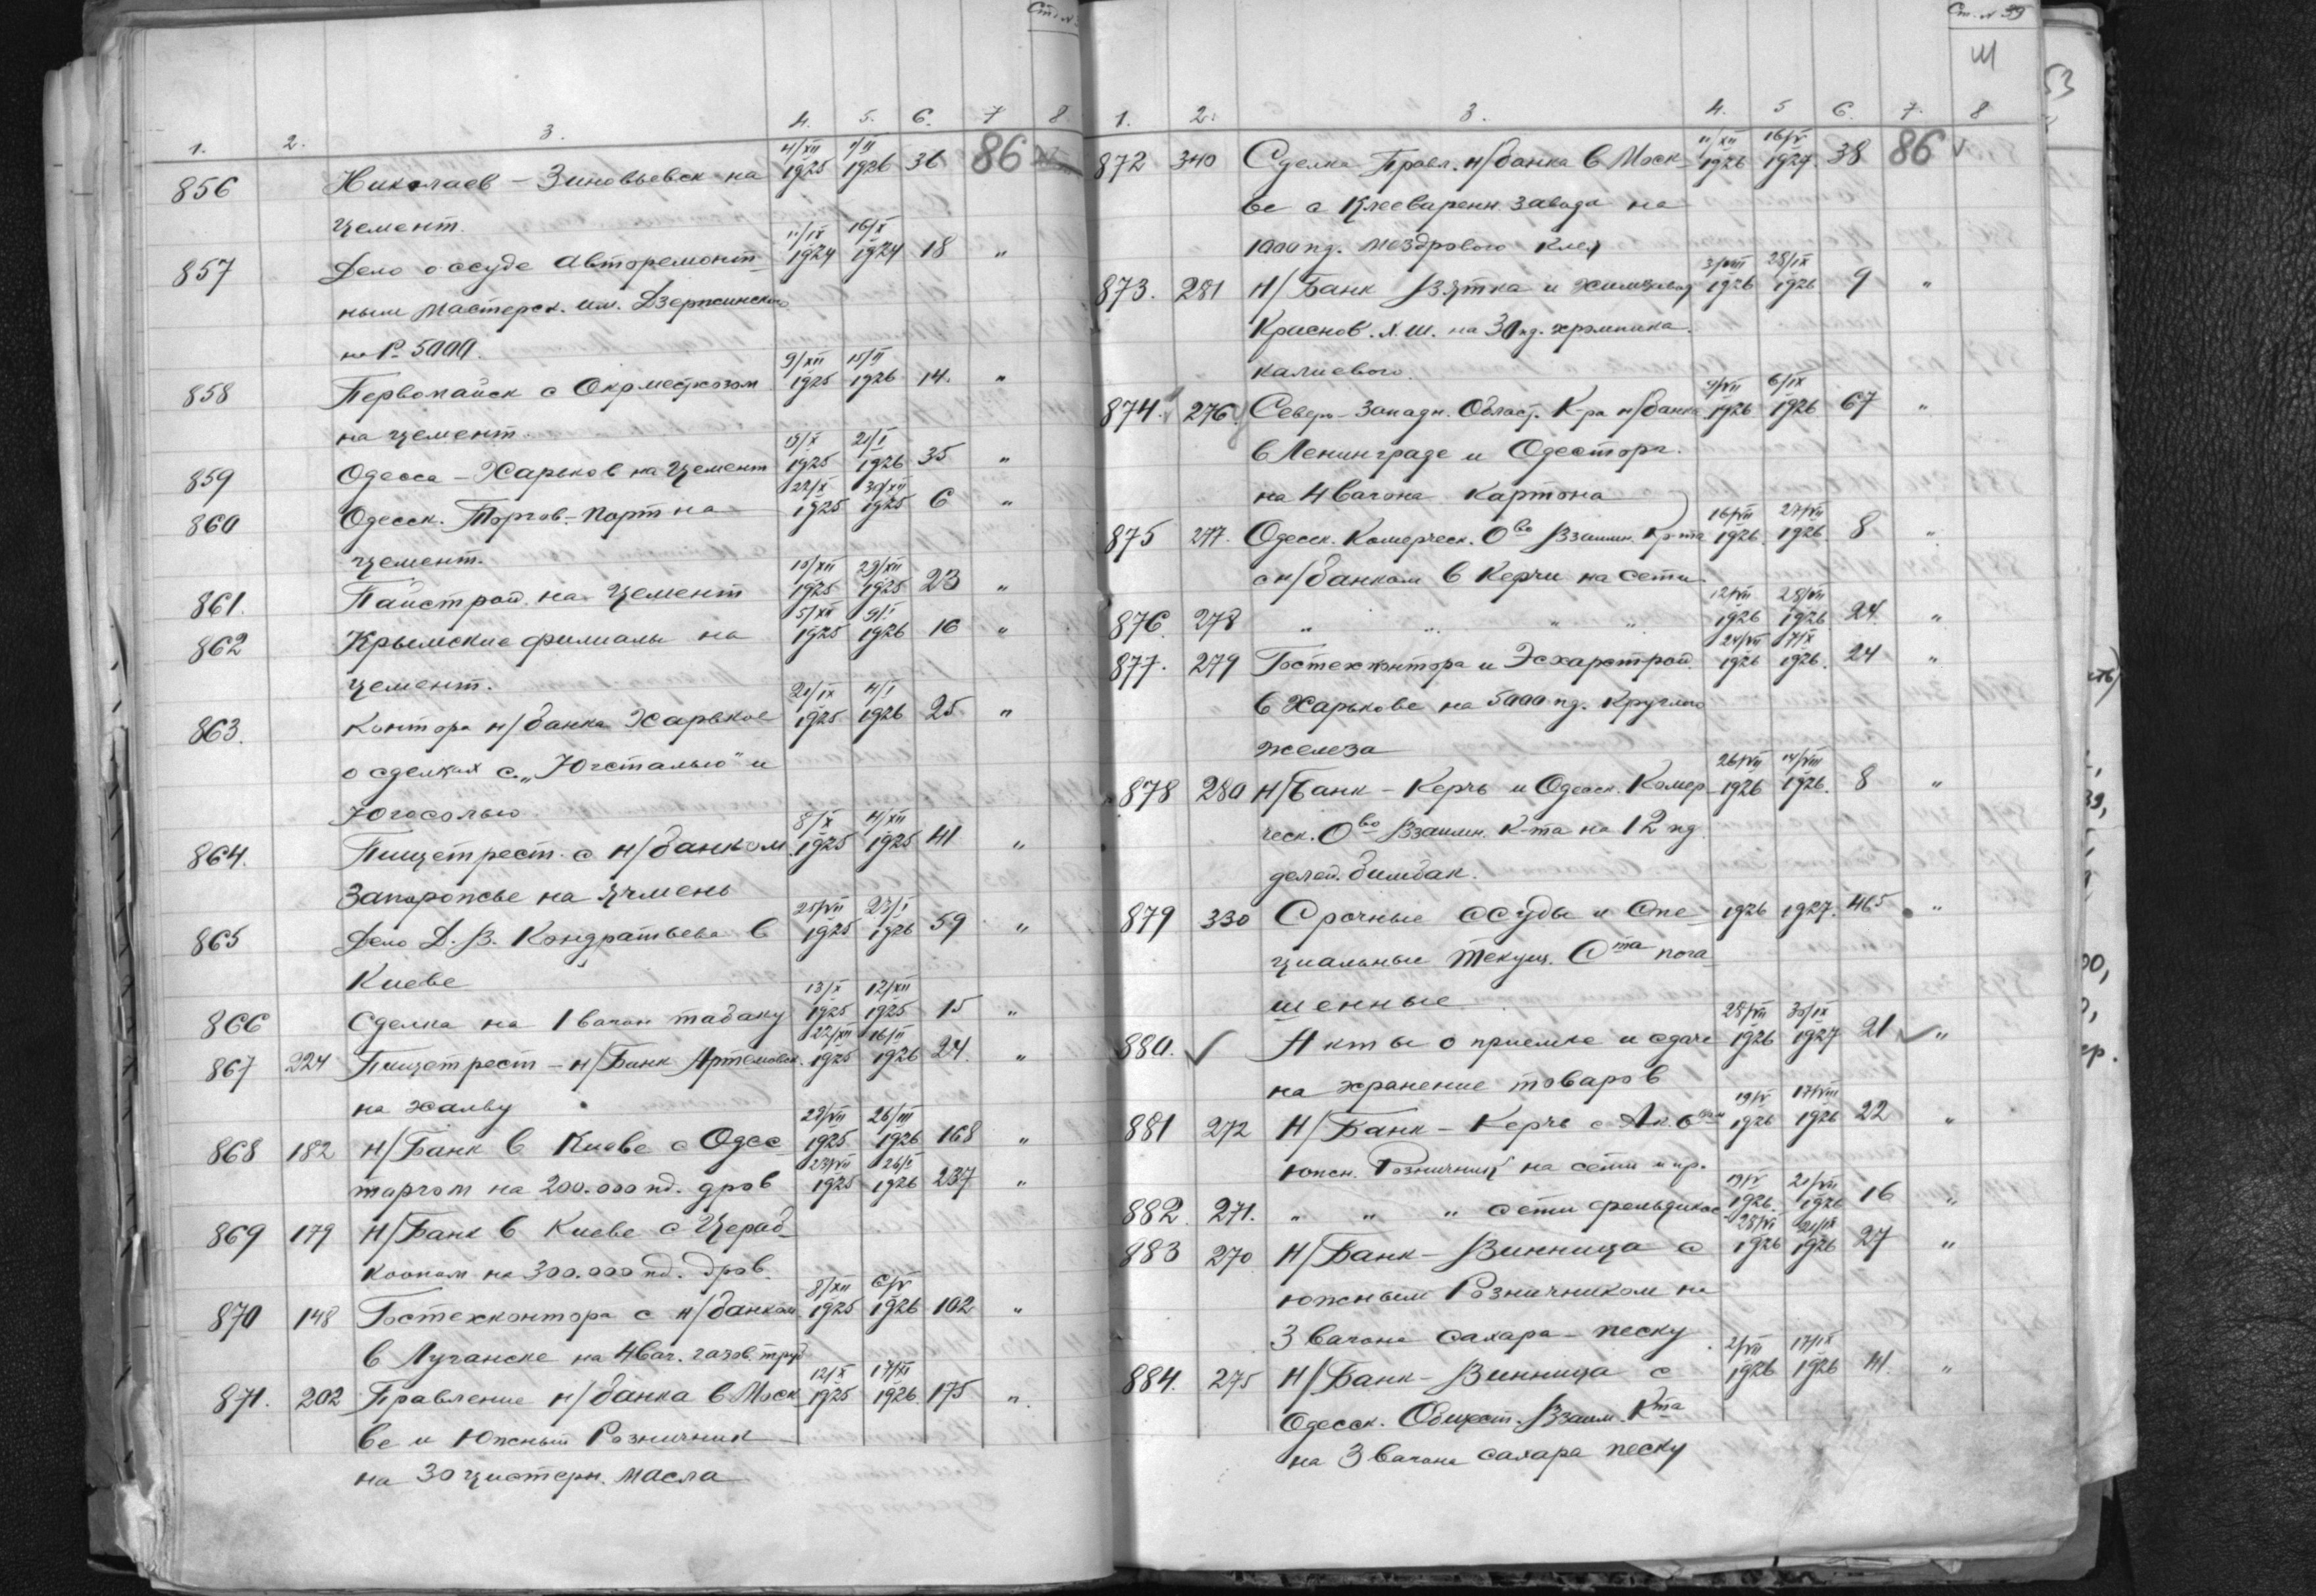 Ст. N
1. 2. 3. 4. 5. 6. 7 8
856 Николаев – Зиновьевск на 4/XII 1925 7/II 1926 36 86
цемент.
857 Дело о ссуде Авторемонт- 11/IX 1924 16/X 1924 18 "
ным мастерск. им. Дзержинского
на Р. 5000.
858 Первомайск с Окрместхозом 9/XII 1925 15/II 1926 14. "
на цемент.
859 Одесса – Харьков на цемент 19/X 1925 21/I 1926 35 "
860 Одесск. Торгов. Порт на 22/X 1925 30/XII 1925 6 "
цемент.
861. Пайстрой на цемент 18/XII 1925 29/XII 1925 23 "
862 Крымские филиалы на 5/XII 1925 9/I 1926 16 "
цемент.
863. Контора н/банка Харькове 21/IX 1925 4/I 1926 25 "
о сделках с „Югсталью" и
Югосолью
864. Пищетрест с н/банком 8/X 1925 4/XII 1925 41 "
Запорожье на ячмень
865 Дело Д. В. Кондратьева в 25/VII 1925 27/I 1926 59 "
Киеве
866 Сделка на 1 вагон табаку 13/X 1925 12/XII 1925 15 "
867 224 Пищетрест – н/Банк Артемовск. 22/XII 1925 16/II 1926 24. "
на халву
868 182 н/Банк в Киеве с Одес- 29/VII 1925 26/III 1926 168 "
торгом на 200.000 пд. дров 23/VII 1925 26/I 1926 237 "
869 179 н/Банк в Киеве с Цераб-
коопом на 300.000 пд. дров.
870 148 Гостехконтора с н/банком 8/XII 1925 6/V 1926 102 "
в Луганске на 4 ваг. газов. труб
871. 202 Правление н/банка в Моск- 12/X 1925 17/XI 1926. 175 "
ве и Южный Розничник
на 30 цистерн. масла
Ст. N 39
1. 2. 3. 4. 5 6. 7. 8
872 340 Сделка Правл. н/банка в Моск- 11/XII 1926 16/V 1927. 38 86 v
ве с Клееваренн. завода на
1000 пд. мездрового клея
873. 281 н/Банк Вятка и Химзавод 3/VIII 1926 28/IX 1926 9 "
Краснов. Х.Ш. на 30 пд. хромпика
калиевого.
874. 276 Северо-Западн. Област. К-ра н/банка 9/VII 1926 6/IX 1926 67 "
в Ленинграде и Одесторг.
на 4 вагона картона
875 277. Одесск. Комерческ. О-во Взаимн. Кр-та 16/VII 1926. 27/VII 1926 8 "
с н/банком в Керчи на сети
876. 278 " " " " 12/VII 1926 28/VII 1926. 24. "
877. 279 Гостехконтора и Эсхарстрой 24/VII 1926 7/X 1926. 24 "
в Харькове на 5000 пд. круглого
железа
878 280 н/Банк – Керчь и Одесск. Комер- 26/VII 1926 14/VIII 1926. 8 "
ческ. О-во Взаимн. К-та на 12 пд.
879 330 Срочные ссуды и Спе- 1926 1927. 465 "
циальные текущ. С-та пога-
шенные
880. ✓ Акты о приемке и сдаче 28/VII 1926 30/IX 1927 21 ✓ "
на хранение товаров
881 272 н/Банк – Керчь с Ак. О-вом 19/V 1926 17/VIII 1926 22 "
южн. Розничник на сети и пр.
882. 271. " " " сети фельдикос 19/V 1926. 21/VII 1926 16 "
883 270 н/Банк – Винница с 28/VI 1926 21/IX 1926 27 "
южным Розничником на
3 вагона сахара-песку
884. 275 н/Банк – Винница с 2/VII 1926 17/IX 1926 41. "
Одесск. Общест. Взаим. К-та
на 3 вагона сахара песку